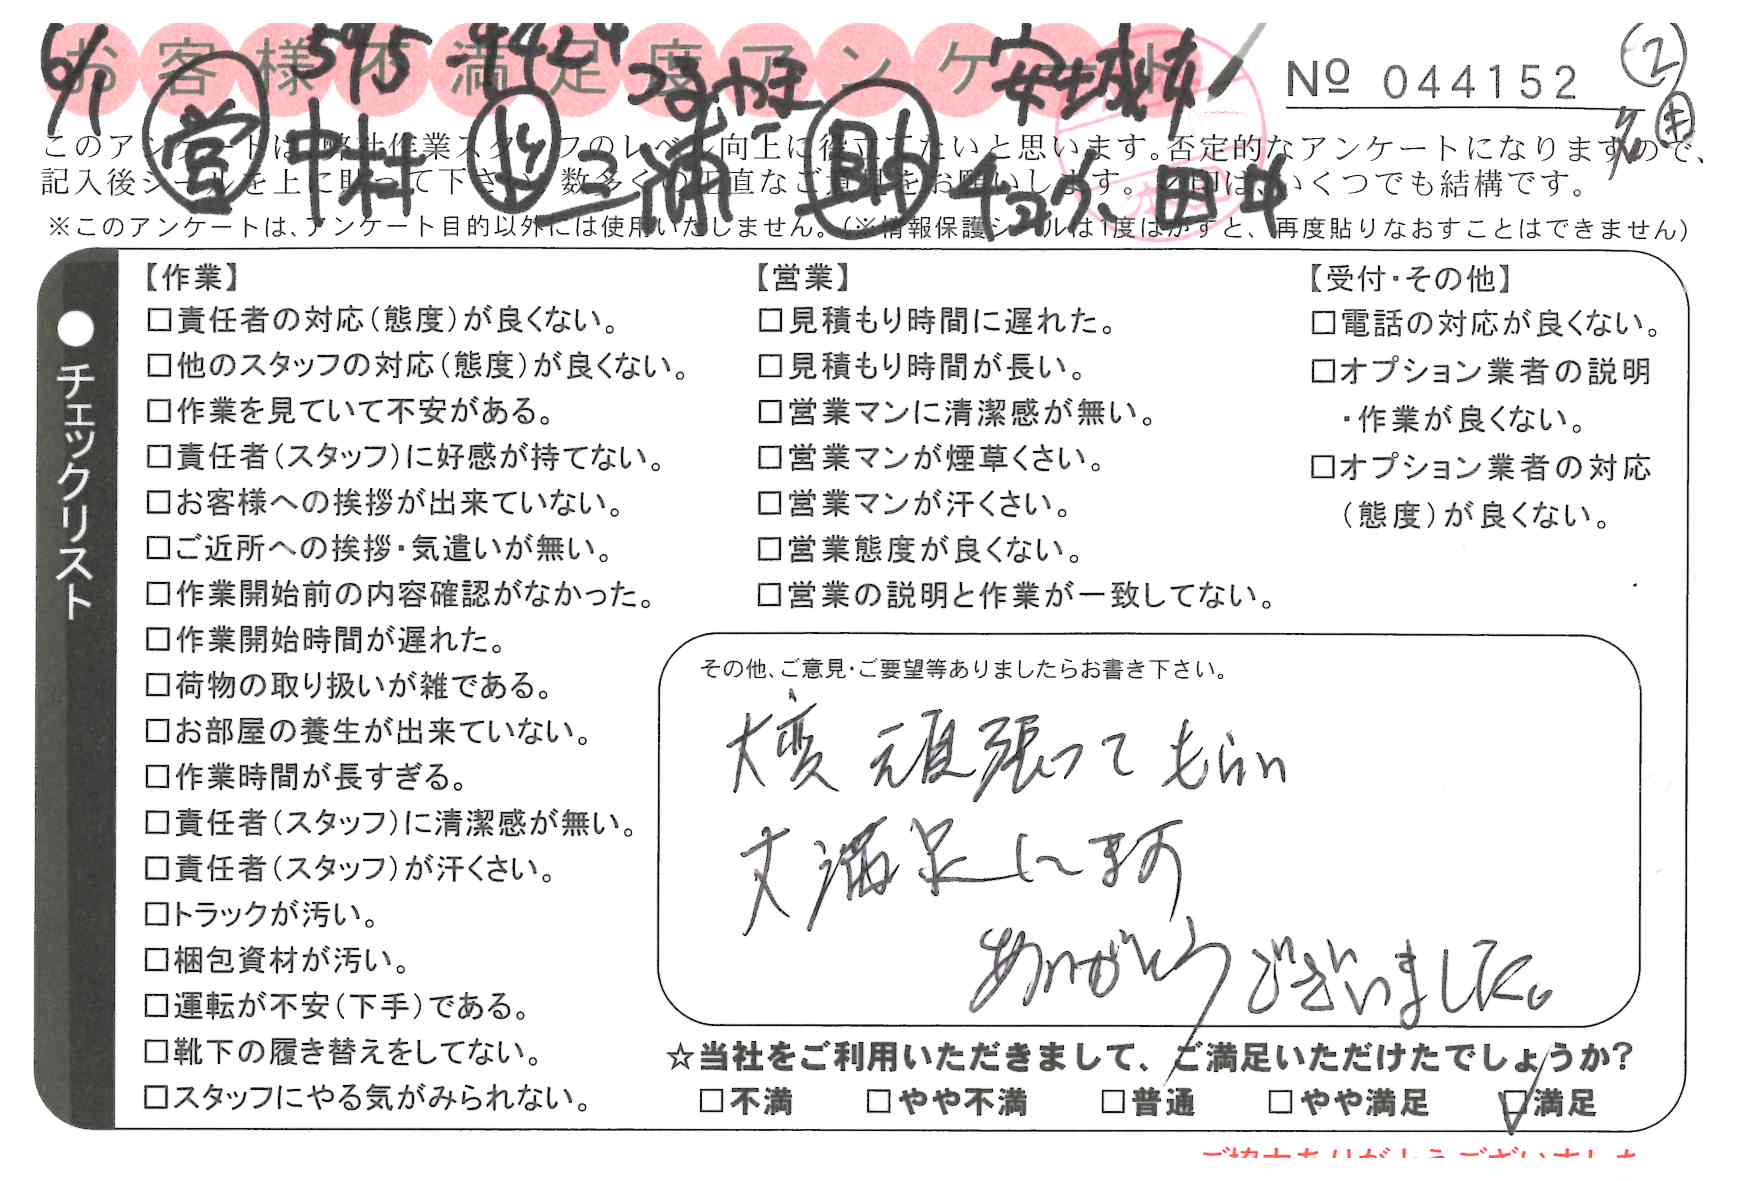 お客様不満足度アンケート
6/1 595-4424 安城市
№ 044152 ②
営 中村 三浦 助 田中
このアンケートは、弊社作業スタッフのレベル向上に役立てたいと思います。否定的なアンケートになりますので、
記入後シールを上に貼って下さい。数多くの正直なご意見をお願いします。✓印は、いくつでも結構です。
※このアンケートは、アンケート目的以外には使用いたしません。(※情報保護シールは1度はがすと、再度貼りなおすことはできません)
●チェックリスト
【作業】
□責任者の対応(態度)が良くない。
□他のスタッフの対応(態度)が良くない。
□作業を見ていて不安がある。
□責任者(スタッフ)に好感が持てない。
□お客様への挨拶が出来ていない。
□ご近所への挨拶・気遣いが無い。
□作業開始前の内容確認がなかった。
□作業開始時間が遅れた。
□荷物の取り扱いが雑である。
□お部屋の養生が出来ていない。
□作業時間が長すぎる。
□責任者(スタッフ)に清潔感が無い。
□責任者(スタッフ)が汗くさい。
□トラックが汚い。
□梱包資材が汚い。
□運転が不安(下手)である。
□靴下の履き替えをしてない。
□スタッフにやる気がみられない。
【営業】
□見積もり時間に遅れた。
□見積もり時間が長い。
□営業マンに清潔感が無い。
□営業マンが煙草くさい。
□営業マンが汗くさい。
□営業態度が良くない。
□営業の説明と作業が一致してない。
【受付・その他】
□電話の対応が良くない。
□オプション業者の説明
・作業が良くない。
□オプション業者の対応
(態度)が良くない。
その他、ご意見・ご要望等ありましたらお書き下さい。
大変頑張ってもらい
大満足してます
ありがとうございました。
☆当社をご利用いただきまして、ご満足いただけたでしょうか?
□不満 □やや不満 □普通 □やや満足 ☑満足
ご協力ありがとうございました